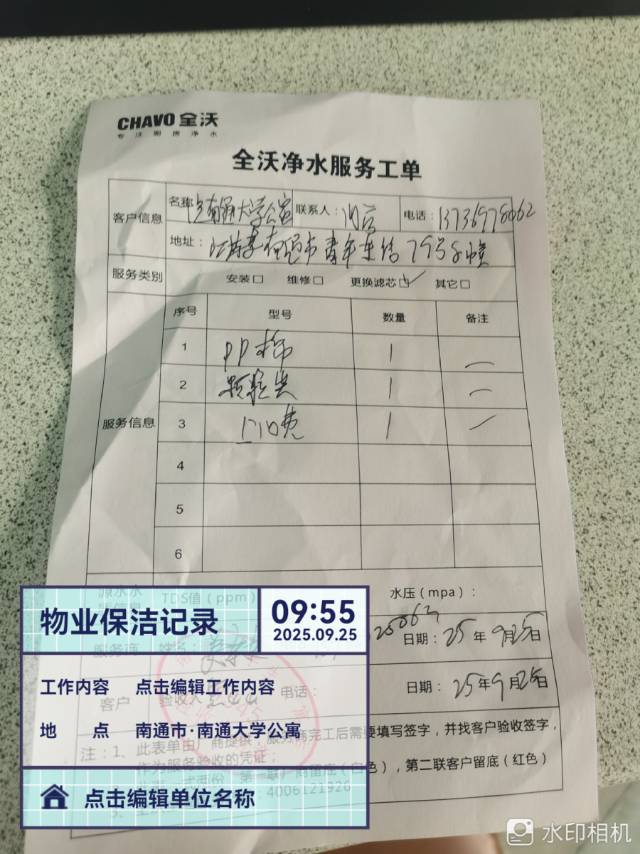 CHAVO 全沃
专注厨房净水
全沃净水服务工单
客户信息
名称 南通大学公寓 联系人： 电话：
地址： 江苏省南通市青年东路79号
服务类别 安装□ 维修□ 更换滤芯☑ 其它□
服务信息
序号 型号 数量 备注
1 PP棉 1 —
2 颗粒炭 1 —
3 上门费 1 —
4
5
6
TDS值（ppm） 水压（mpa）：
日期：25年9月25日
客户 验收人 电话： 日期：25年9月25日
注：1、此表单由厂商提供，服务商完工后需要填写签字，并找客户验收签字，
作为服务验收的凭证；
留底（白色），第二联客户留底（红色）
4006121926
物业保洁记录
09:55
2025.09.25
工作内容 点击编辑工作内容
地 点 南通市·南通大学公寓
点击编辑单位名称
水印相机